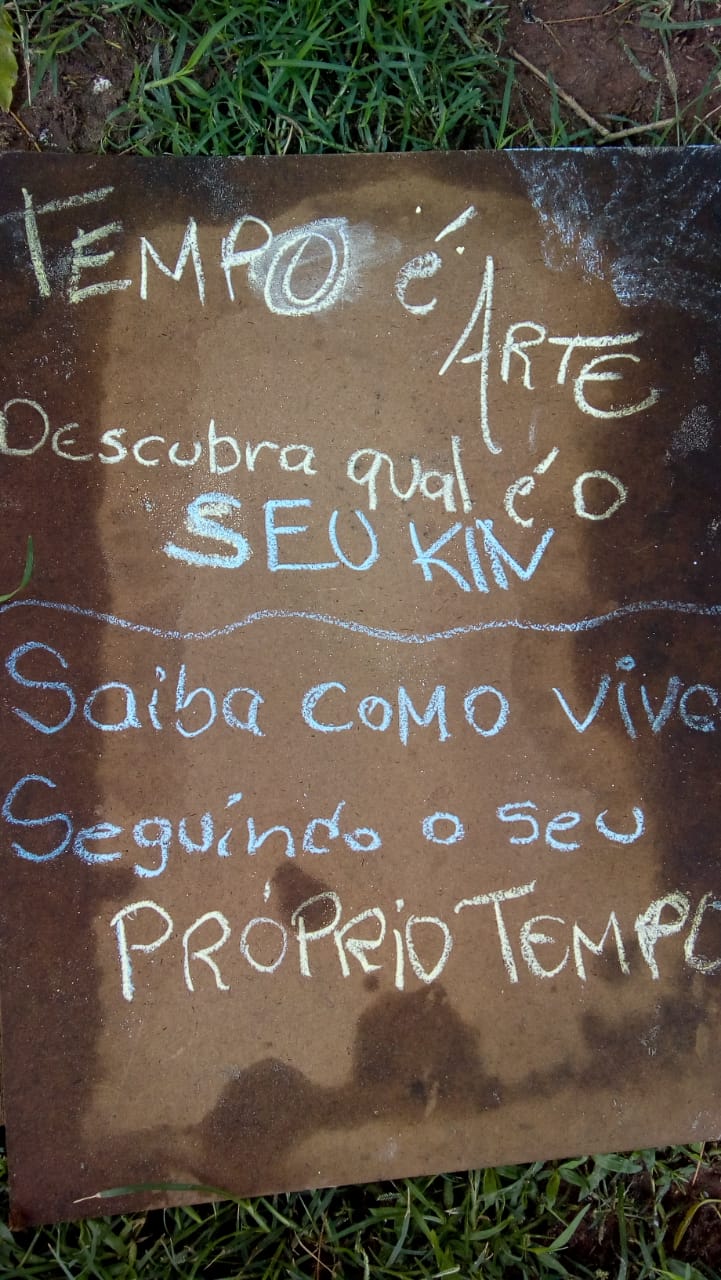 TEMPO é
ARTE
Descubra qual é o
SEU KIN
Saiba como vive
Seguindo o seu
PRÓPRIO TEMPO